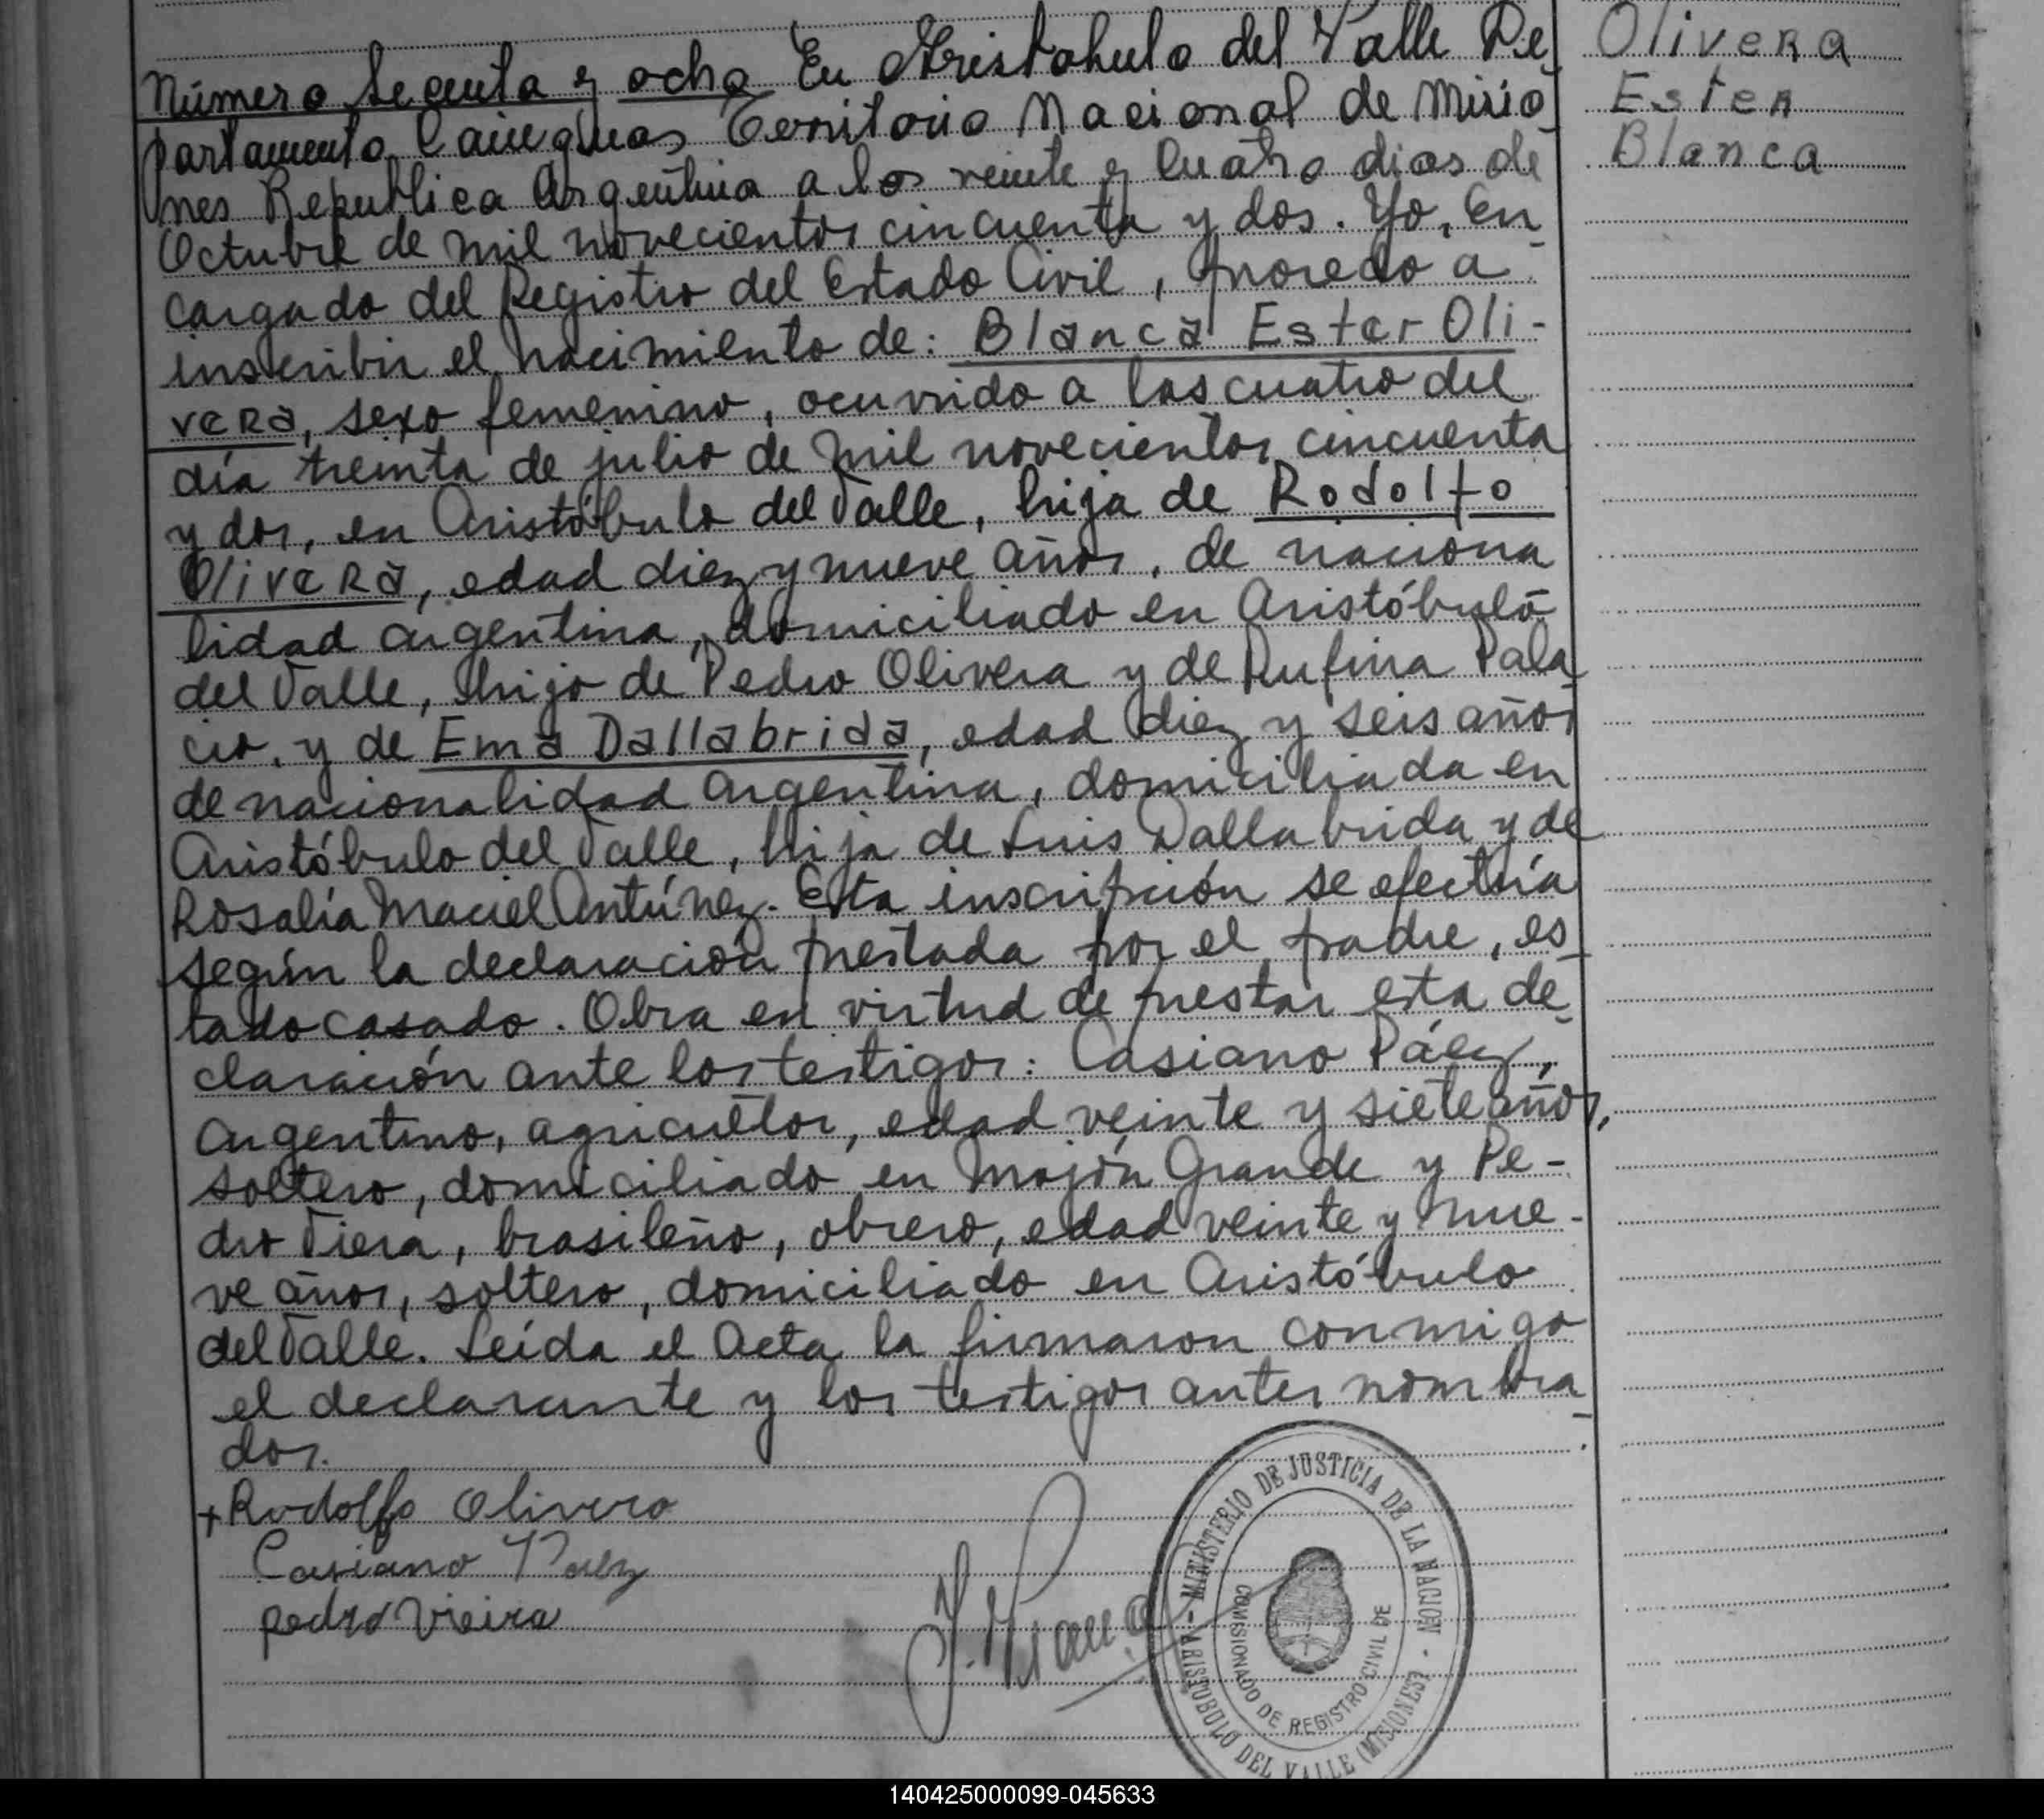 Número Secenta y ocho En Aristobulo del Valle De
partamento Cainguas Territorio Nacional de Misio
nes Republica Argentina a los veinte y cuatro dias de
Octubre de mil novecientos cincuenta y dos. Yo, En
cargado del Registro del Estado Civil, procedo a
inscribir el nacimiento de: Blanca Ester Oli-
vera, sexo femenino, ocurrido a las cuatro del
día treinta de julio de mil novecientos cincuenta
y dos, en Aristóbulo del Valle, hija de Rodolfo
Olivera, edad diez y nueve años, de naciona
lidad argentina, domiciliado en Aristóbulo
del Valle, hijo de Pedro Olivera y de Rufina Pala
cio, y de Ema Dallabrida, edad diez y seis años
de nacionalidad argentina, domiciliada en
Aristóbulo del Valle, hija de Luis Dallabrida y de
Rosalía Maciel Antúnez. Esta inscripción se efectúa
según la declaración prestada por el padre, es
tado casado. Obra en virtud de prestar esta de
claración ante los testigos: Casiano Páez,
argentino, agricultor, edad veinte y siete años,
soltero, domiciliado en Mojón Grande y Pe-
dro Viera, brasileño, obrero, edad veinte y nue-
ve años, soltero, domiciliado en Aristóbulo
del Valle. Leída el Acta la firmaron conmigo
el declarante y los testigos antes nombra
dos.
+ Rodolfo Olivera
Casiano Paez
pedro Vieira
Olivera
Ester
Blanca
- MINISTERIO DE JUSTICIA DE LA NACION -
ARISTOBULO DEL VALLE (MISIONES)
COMISIONADO DE REGISTRO CIVIL DE
140425000099-045633